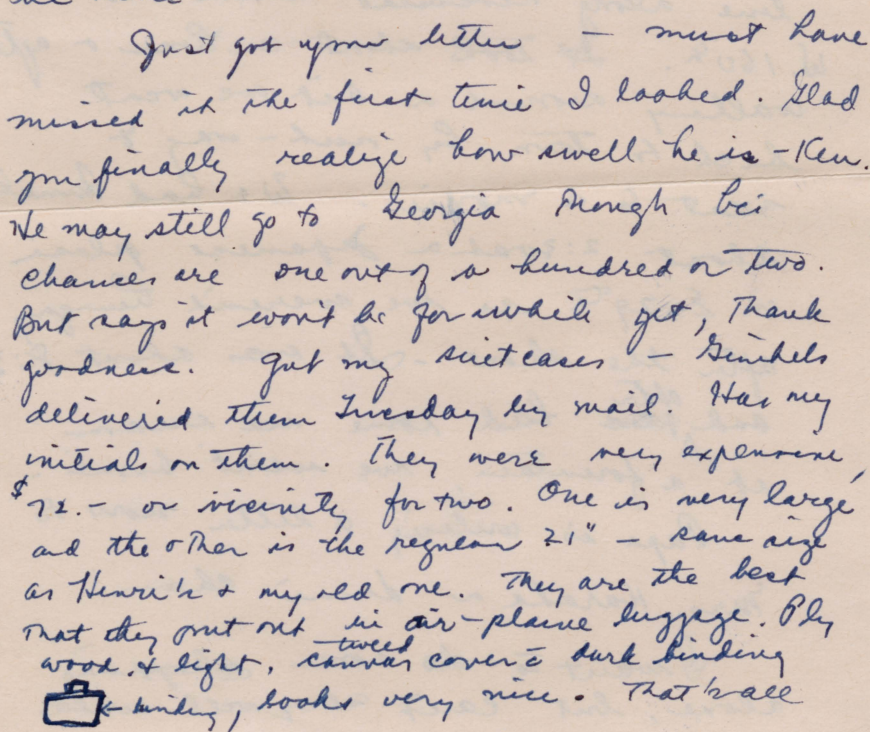 Just got your letter — must have
missed it the first time I looked. Glad
you finally realize how swell he is — Ken.
He may still go to Georgia though his
chances are one out of a hundred or two.
But says it won't be for awhile yet, Thank
goodness. Got my suitcases — Gimbels
delivered them Tuesday by mail. Has my
initials on them. They were very expensive,
$72.— or vicinity for two. One is very large
and the other is the regular 21" — same size
as Henri's & my old one. They are the best
that they put out in air-plane luggage. Ply
wood & light, canvas tweed cover c̄ dark binding
← binding, looks very nice. That's all